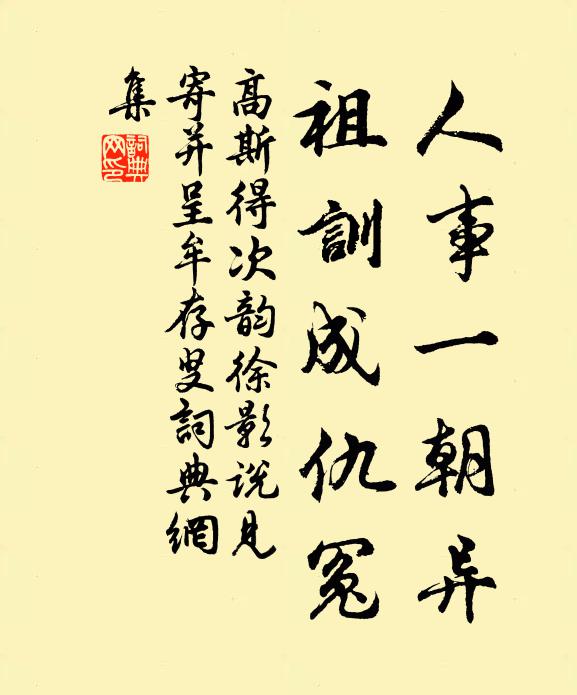 人事一朝异
祖訓成仇冤
高斯得次韵徐影说見
寄并呈牟存叟詞典網
集
詞典网印